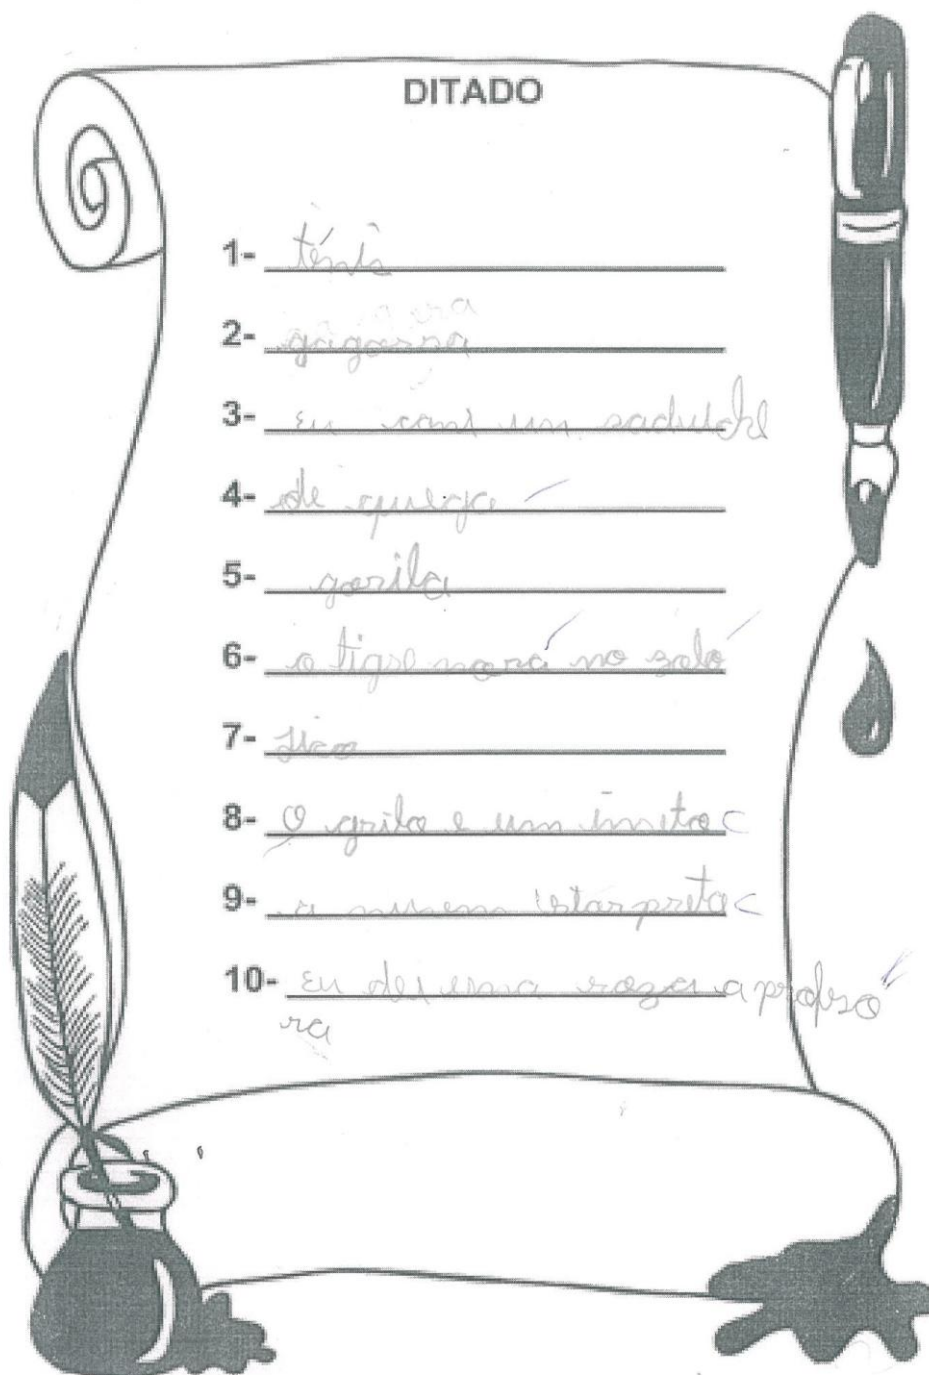 DITADO
1- ténis
2- gigarra
3- eu comi um saduiche
4- de queijo
5- gorila
6- o tigre morá no zoló
7-
8- O grilo e um inseto
9- a nuvem istar preta
10- eu dei uma roza a profeso
ra